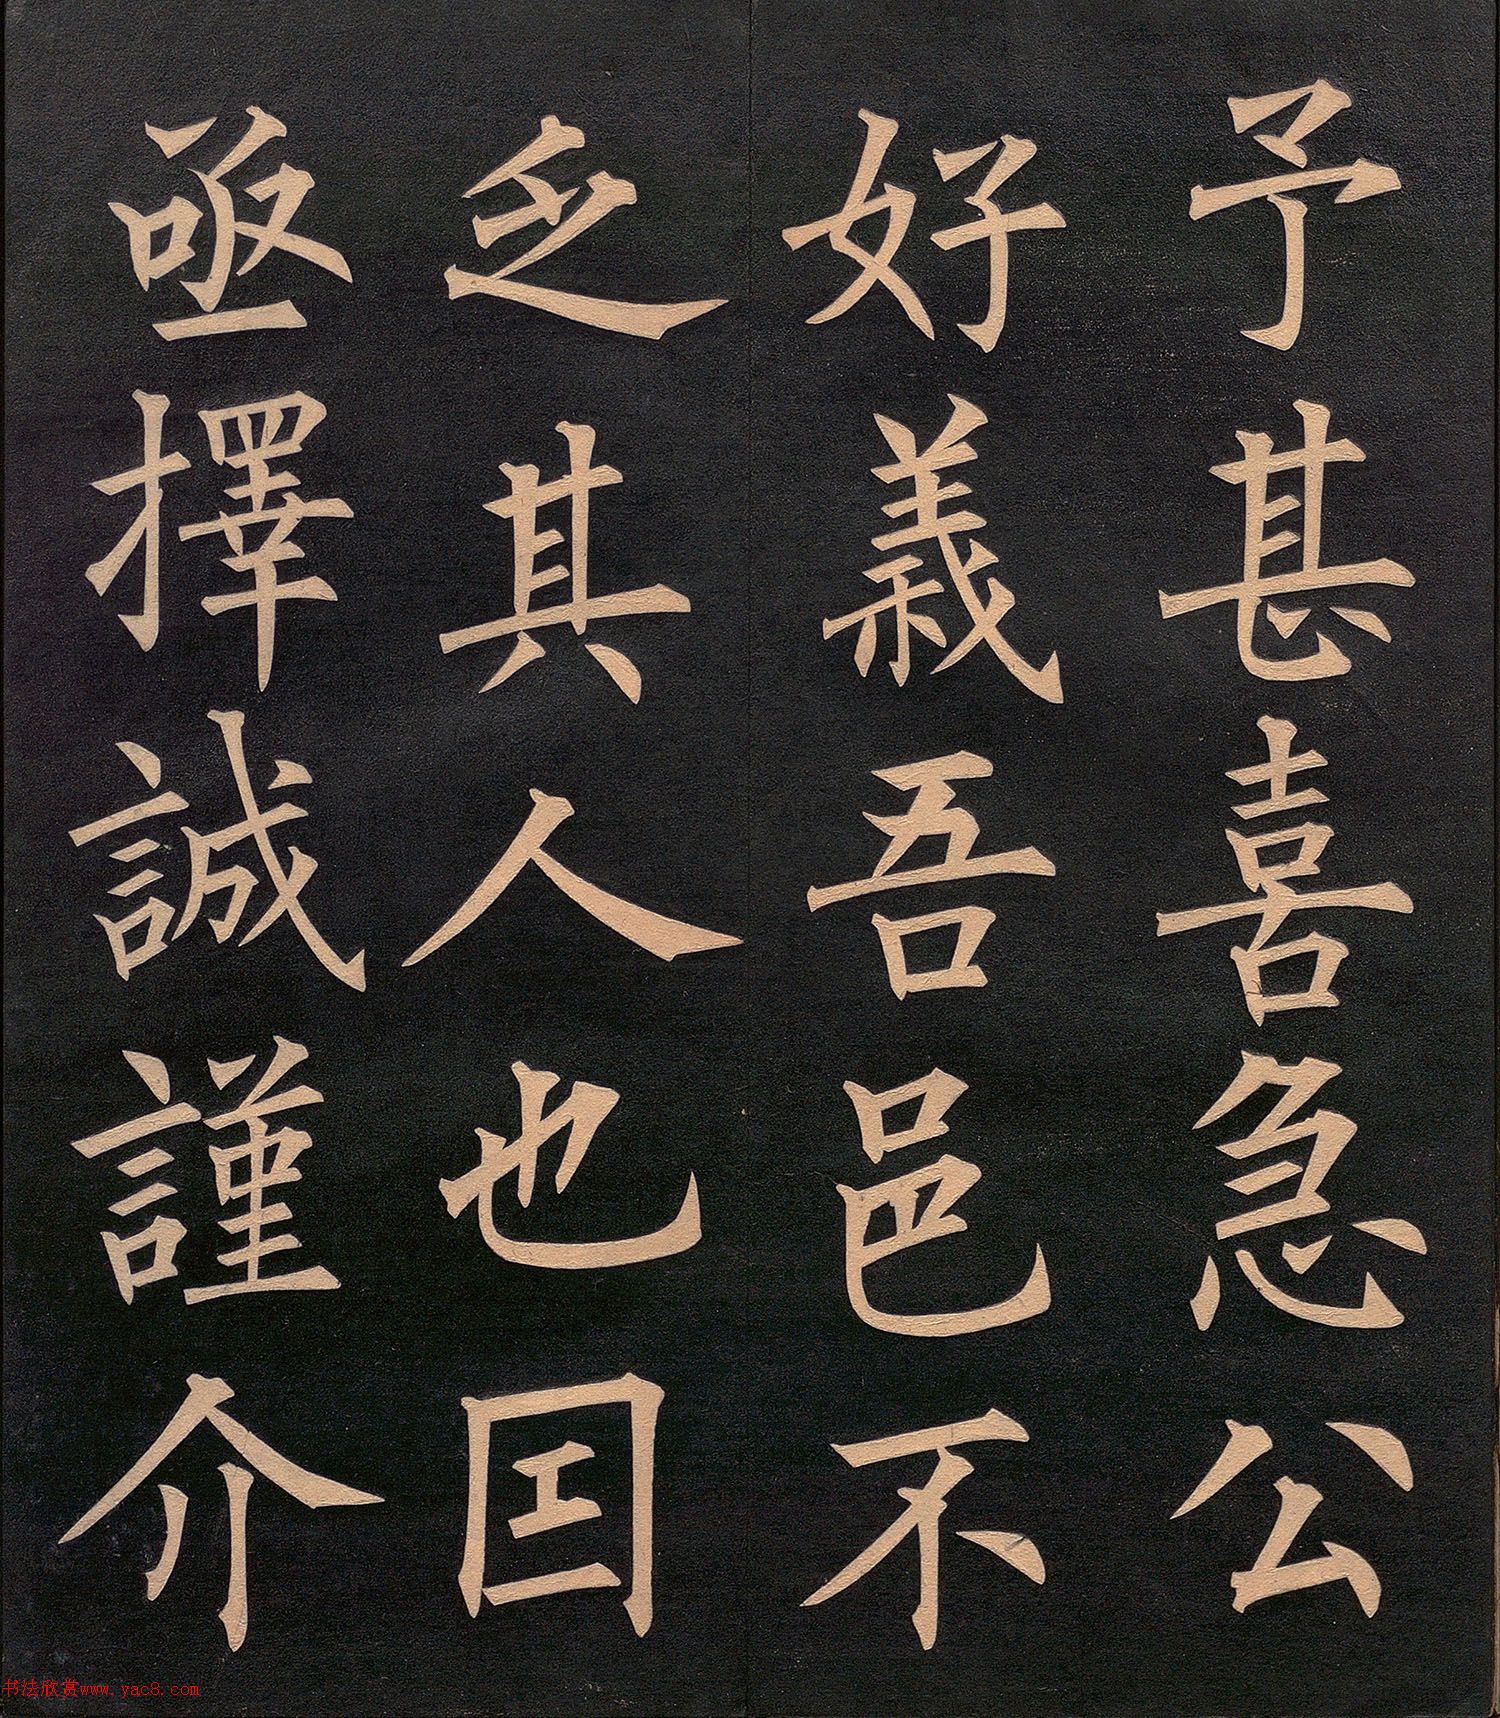 予甚喜急公
好義吾邑不
乏其人也囯
亟擇誠謹介
书法欣赏www.yac8.com